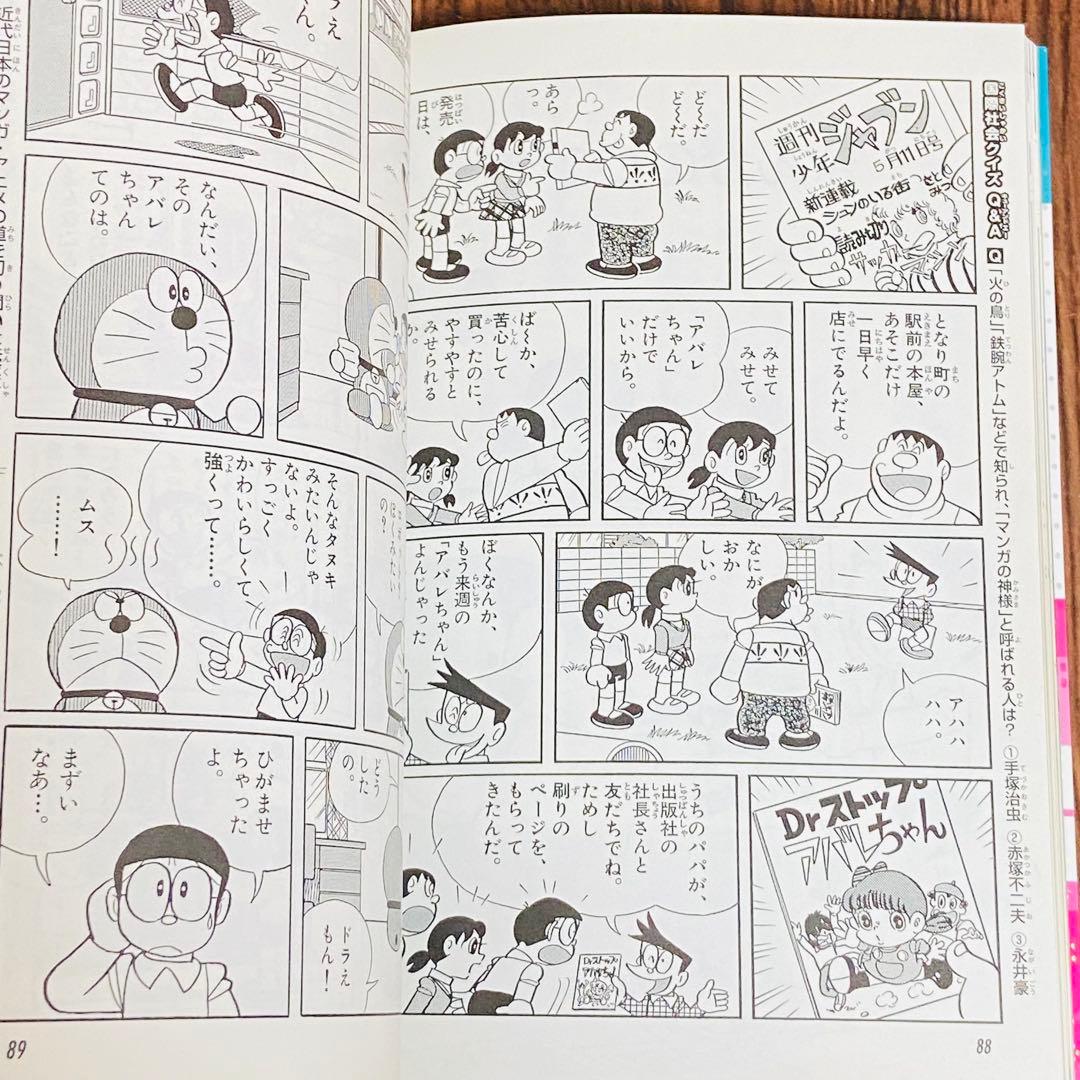 国際社会クイズ Q&A Q 「火の鳥」「鉄腕アトム」などで知られ、「マンガの神様」と呼ばれる人は? ①手塚治虫 ②赤塚不二夫 ③永井豪
週刊
少年
ジャブン
5月11日号
新連載
シュンのいる街
さとう
みつ
読み切り
サッカー
ど〜だ
ど〜だ。
あら
っ。
発売
日は、
となり町の
駅前の本屋、
あそこだけ
一日早く
店にでるんだよ。
みせて
みせて。
「アバレ
ちゃん」
だけで
いいから。
ば〜か、
苦心して
買ったのに、
やすやすと
みせられる
か。
なにが
おか
しい。
アハハ
ハハ。
ぼくなんか、
もう来週の
「アバレちゃん」
よんじゃった
Drストップ
アバレちゃん
うちのパパが、
出版社の
社長さんと
友だちでね。
ためし
刷りの
ページを、
もらって
きたんだ。
Drストップ
アバレちゃん
88
ドラえ
もん。
なんだい、
その
アバレ
ちゃん
てのは。
の?
そんなタヌキ
みたいんじゃ
ないよ。
すっごく
かわいらしくて
強くって……。
ムス
……!
どう
した
の。
ドラえ
もん!
ひがませ
ちゃった
よ。
まずい
なあ…。
89